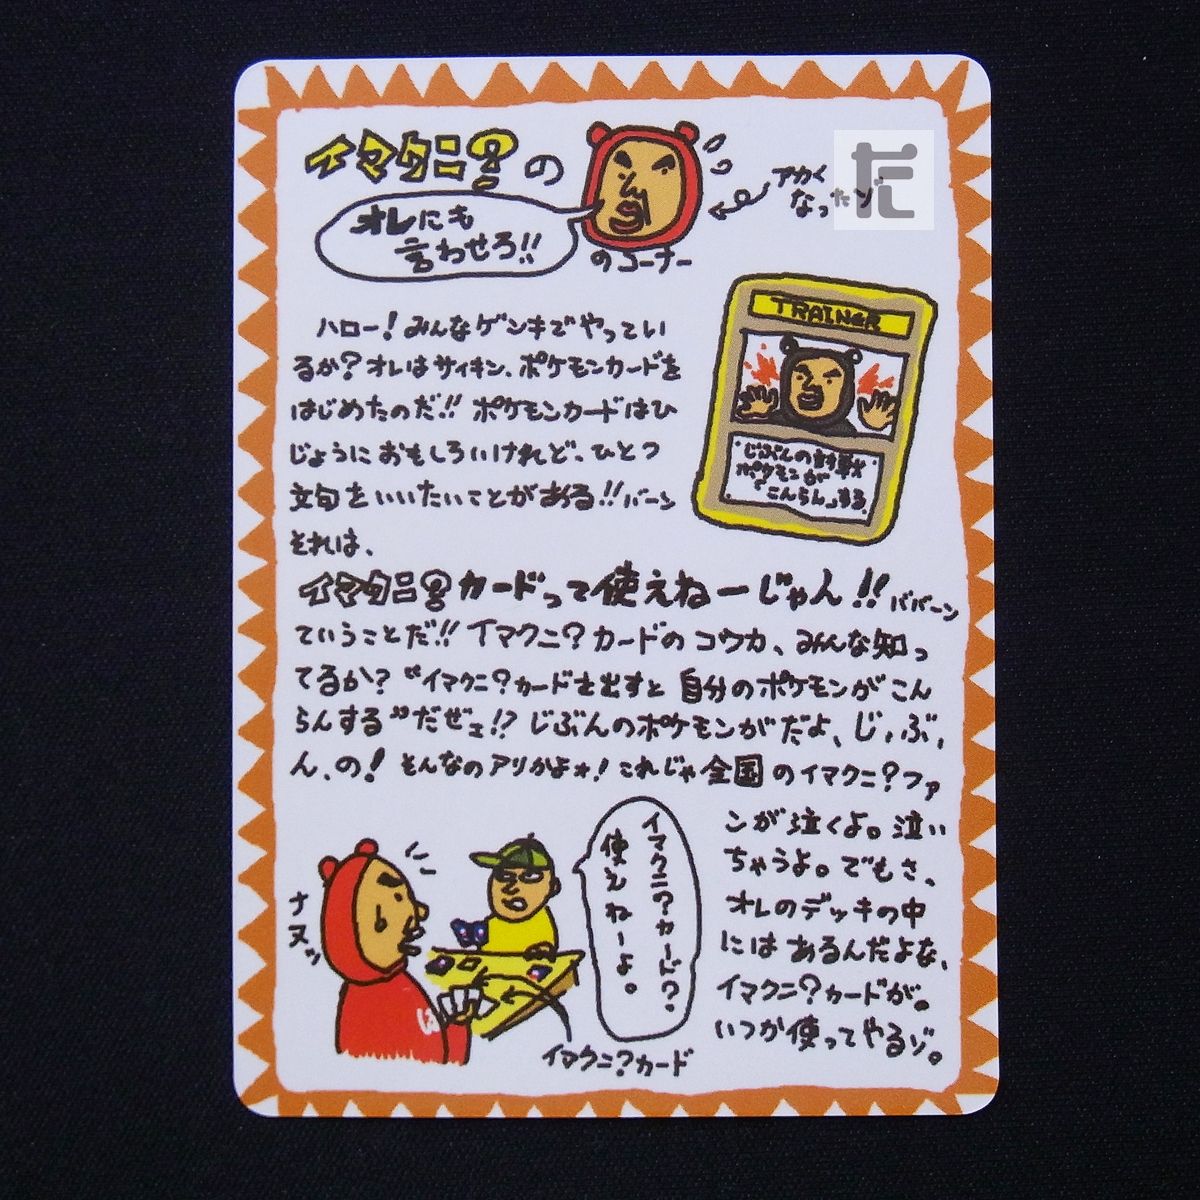 イマクニ?の
オレにも
言わせろ!!
のコーナー
アカく
なったゾ
た
TRAINER
じぶんの対戦
ポケモンが
「こんらん」する
ハロー!みんなゲンキでやってい
るか?オレはサイキン、ポケモンカードを
はじめたのだ!!ポケモンカードはひ
じょうにおもしろいけれど、ひとつ
文句をいいたいことがある!!バーン
それは、
イマクニ?カードって使えねーじゃん!!ババーン
ていうことだ!!イマクニ?カードのコウカ、みんな知っ
てるか?“イマクニ?カードを出すと自分のポケモンがこん
らんする”だぜェ!?じぶんのポケモンがだよ、じ,ぶ,
ん、の!そんなのアリかよォ!これじゃ全国のイマクニ?ファ
ンが泣くよ。泣い
ちゃうよ。でもさ、
オレのデッキの中
にはあるんだよな、
イマクニ?カードが。
いつか使ってやるゾ。
ナヌッ
イマクニ?カード?
使えねーよ。
は
イマクニ?カード